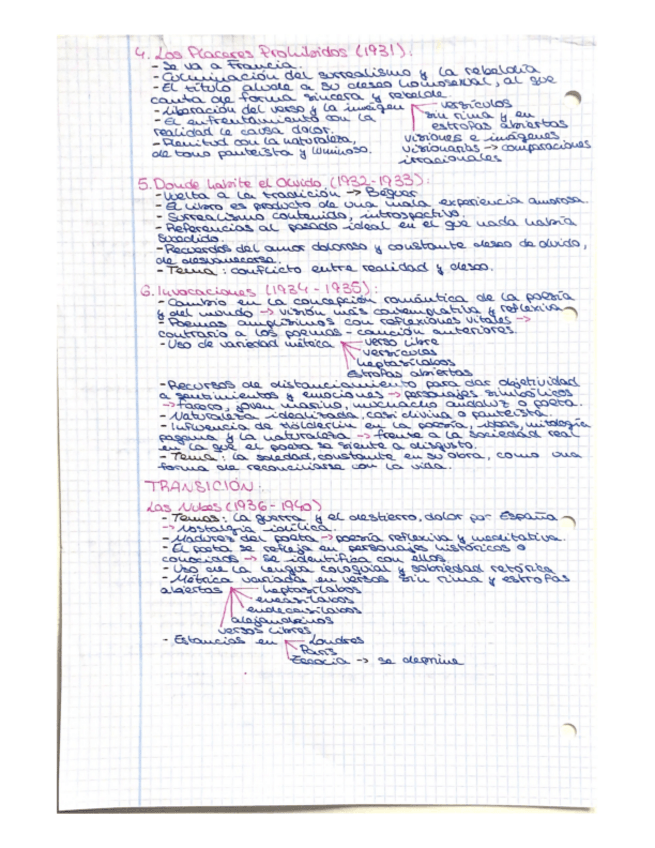 4. Los Placeres Prohibidos (1931):
- Se va a Francia.
- Culminación del surrealismo y la rebeldía
- El título alude a su deseo homosexual, al que
canta de forma sincera y rebelde.
- Liberación del verso y la imagen
versículos
sin rima y en
estrofas abiertas
visiones e imágenes
visionarias → comparaciones
irracionales
- El enfrentamiento con la
realidad le causa dolor.
- Plenitud con la naturaleza,
de tono panteísta y luminoso.
5. Donde habite el Olvido (1932-1933):
- Vuelta a la tradición → Bécquer
- El libro es producto de una mala experiencia amorosa.
- Surrealismo contenido, introspectivo.
- Referencias al pasado ideal en el que nada habría
sucedido.
- Recuerdos del amor doloroso y constante deseo de olvido,
de desvanecerse.
- Tema: conflicto entre realidad y deseo.
6. Invocaciones (1934-1935):
- Cambio en la concepción romántica de la poesía
y del mundo → visión más contemplativa y reflexiva
- Poemas amplísimos con reflexiones vitales →
contrario a los poemas-canción anteriores.
- Uso de variedad métrica
verso libre
versículos
heptasílabos
estrofas abiertas
- Recursos de distanciamiento para dar objetividad
a sentimientos y emociones → personajes simbólicos
→ farero, joven marino, muchacho andaluz o poeta.
- Naturaleza idealizada, casi divina o panteísta.
- Influencia de Hölderlin en la poesía, ideas, mitología
pagana y la naturaleza → frente a la sociedad real
en la que el poeta se siente a disgusto.
- Tema: la soledad, constante en su obra, como una
forma de reconciliarse con la vida.
TRANSICIÓN:
Las Nubes (1936-1940)
- Temas: la guerra y el destierro, dolor por España
→ Nostalgia idílica.
- Madurez del poeta → poesía reflexiva y meditativa.
- El poeta se refleja en personajes históricos o
conocidos → se identifica con ellos.
- Uso de la lengua coloquial y sobriedad retórica
- Métrica variada en versos sin rima y estrofas
abiertas
heptasílabos
eneasílabos
endecasílabos
alejandrinos
versos libres
- Estancias en
Londres
París
Escocia → se deprime